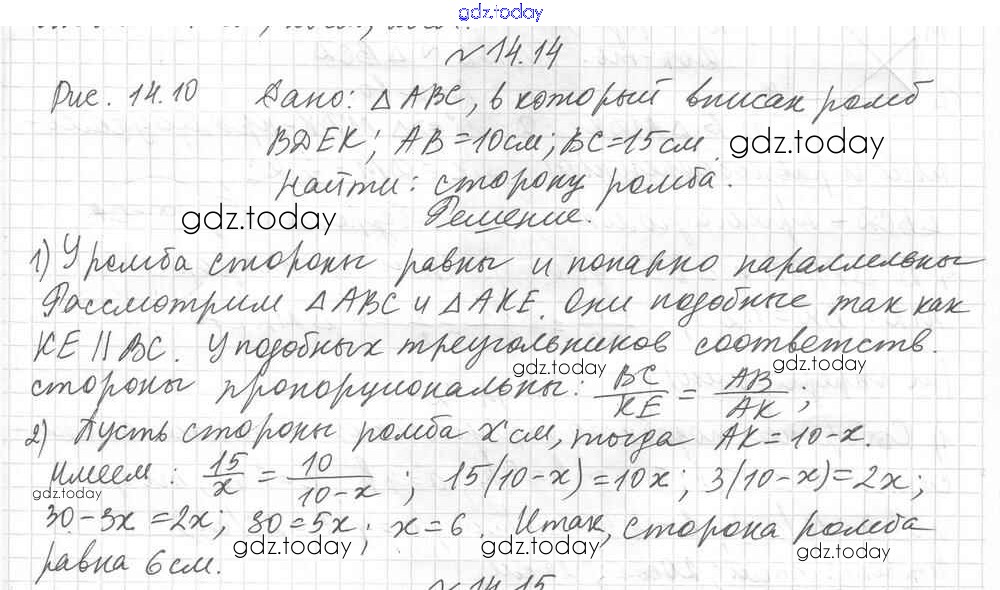 gdz.today
№14.14
Рис. 14.10 Дано: △ABC, в который вписан ромб
BDEK; AB=10см; BC=15см. gdz.today
Найти: сторону ромба.
gdz.today Решение.
1) У ромба стороны равны и попарно параллельны
Рассмотрим △ABC и △AKE. Они подобные так как
KE || BC. У подобных треугольников соответств.
gdz.today gdz.today
стороны пропорциональны: BC/KE = AB/AK;
2) Пусть стороны ромба x см, тогда AK=10-x.
Имеем: 15/x = 10/10-x; 15(10-x)=10x; 3(10-x)=2x;
gdz.today
30-3x=2x; 30=5x; x=6. Итак, сторона ромба
gdz.today gdz.today gdz.today
равна 6см.
№14.15